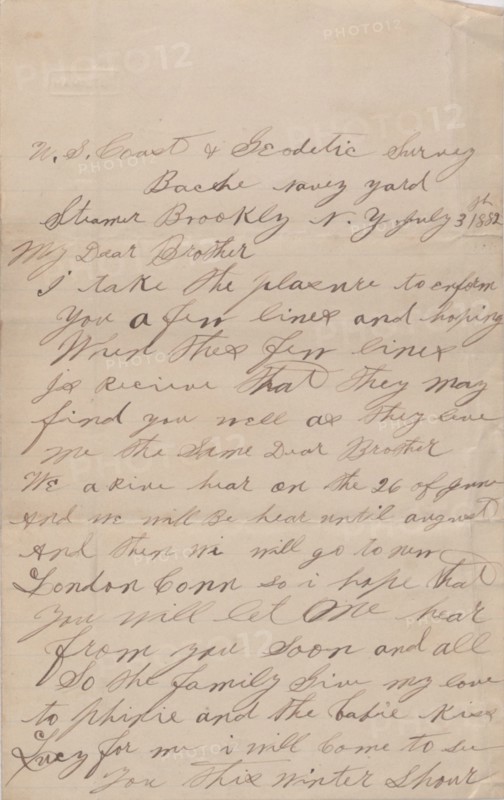 U. S. Coast & Geodetic Survey
Bache navey yard
Steamer Brookly N. Y July 3th 1882
My Dear Brother
I take the plasure to enform
you a few lines and hoping
When thes few lines
Is recieve that They may
find you well as They leve
me the same Dear Brother
WE arive hear on the 26 of June
And we will Be hear until august
And then wi will go to new
London Conn so i hope that
You will let Me hear
from you soon and all
So the family Give my love
to phinie and the babie Kiss
Lucy for me i will Come to see
You this winter Shour
PHOTO12